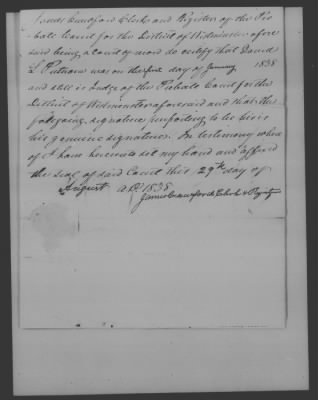 James Crawford Clerk and Register of the Pro
bate Court for the District of Westminster afore
said being a court of record do certify that David
L Putnam was on the first day of January 1838
and still is Judge of the Probate Court for the
District of Westminster aforesaid and that the
foregoing signature purporting to be his is
his genuine signature. In testimony where
of I have hereunto set my hand and affixed
the seal of said Court this 29th day of
August AD 1838
James Crawford Clerk & Regist